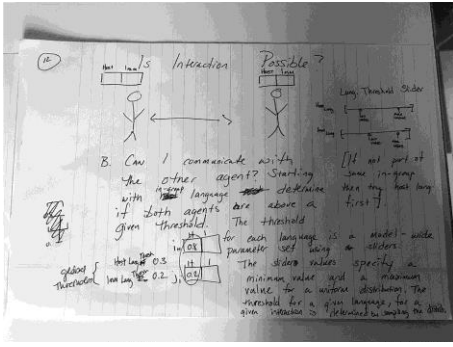 12
Is Interaction Possible?
Host Imm
Host Imm
Lang. Threshold Slider
B. Can I communicate with
the other agent? Starting
with in-group language determine
if both agents are above a
given threshold. The threshold
for each language is a model-wide
parameter set using sliders.
The sliders values specify a
minimum value and a maximum
value for a uniform distribution. The
threshold for a given language, for a
given interaction is determined by sampling the
[If not part of
same in-group
then try host lang.
first]
H I
i 0.8
H I
j 0.2
global
thresholds
Host Lang Thresh 0.3
Imm Lang Thresh 0.2